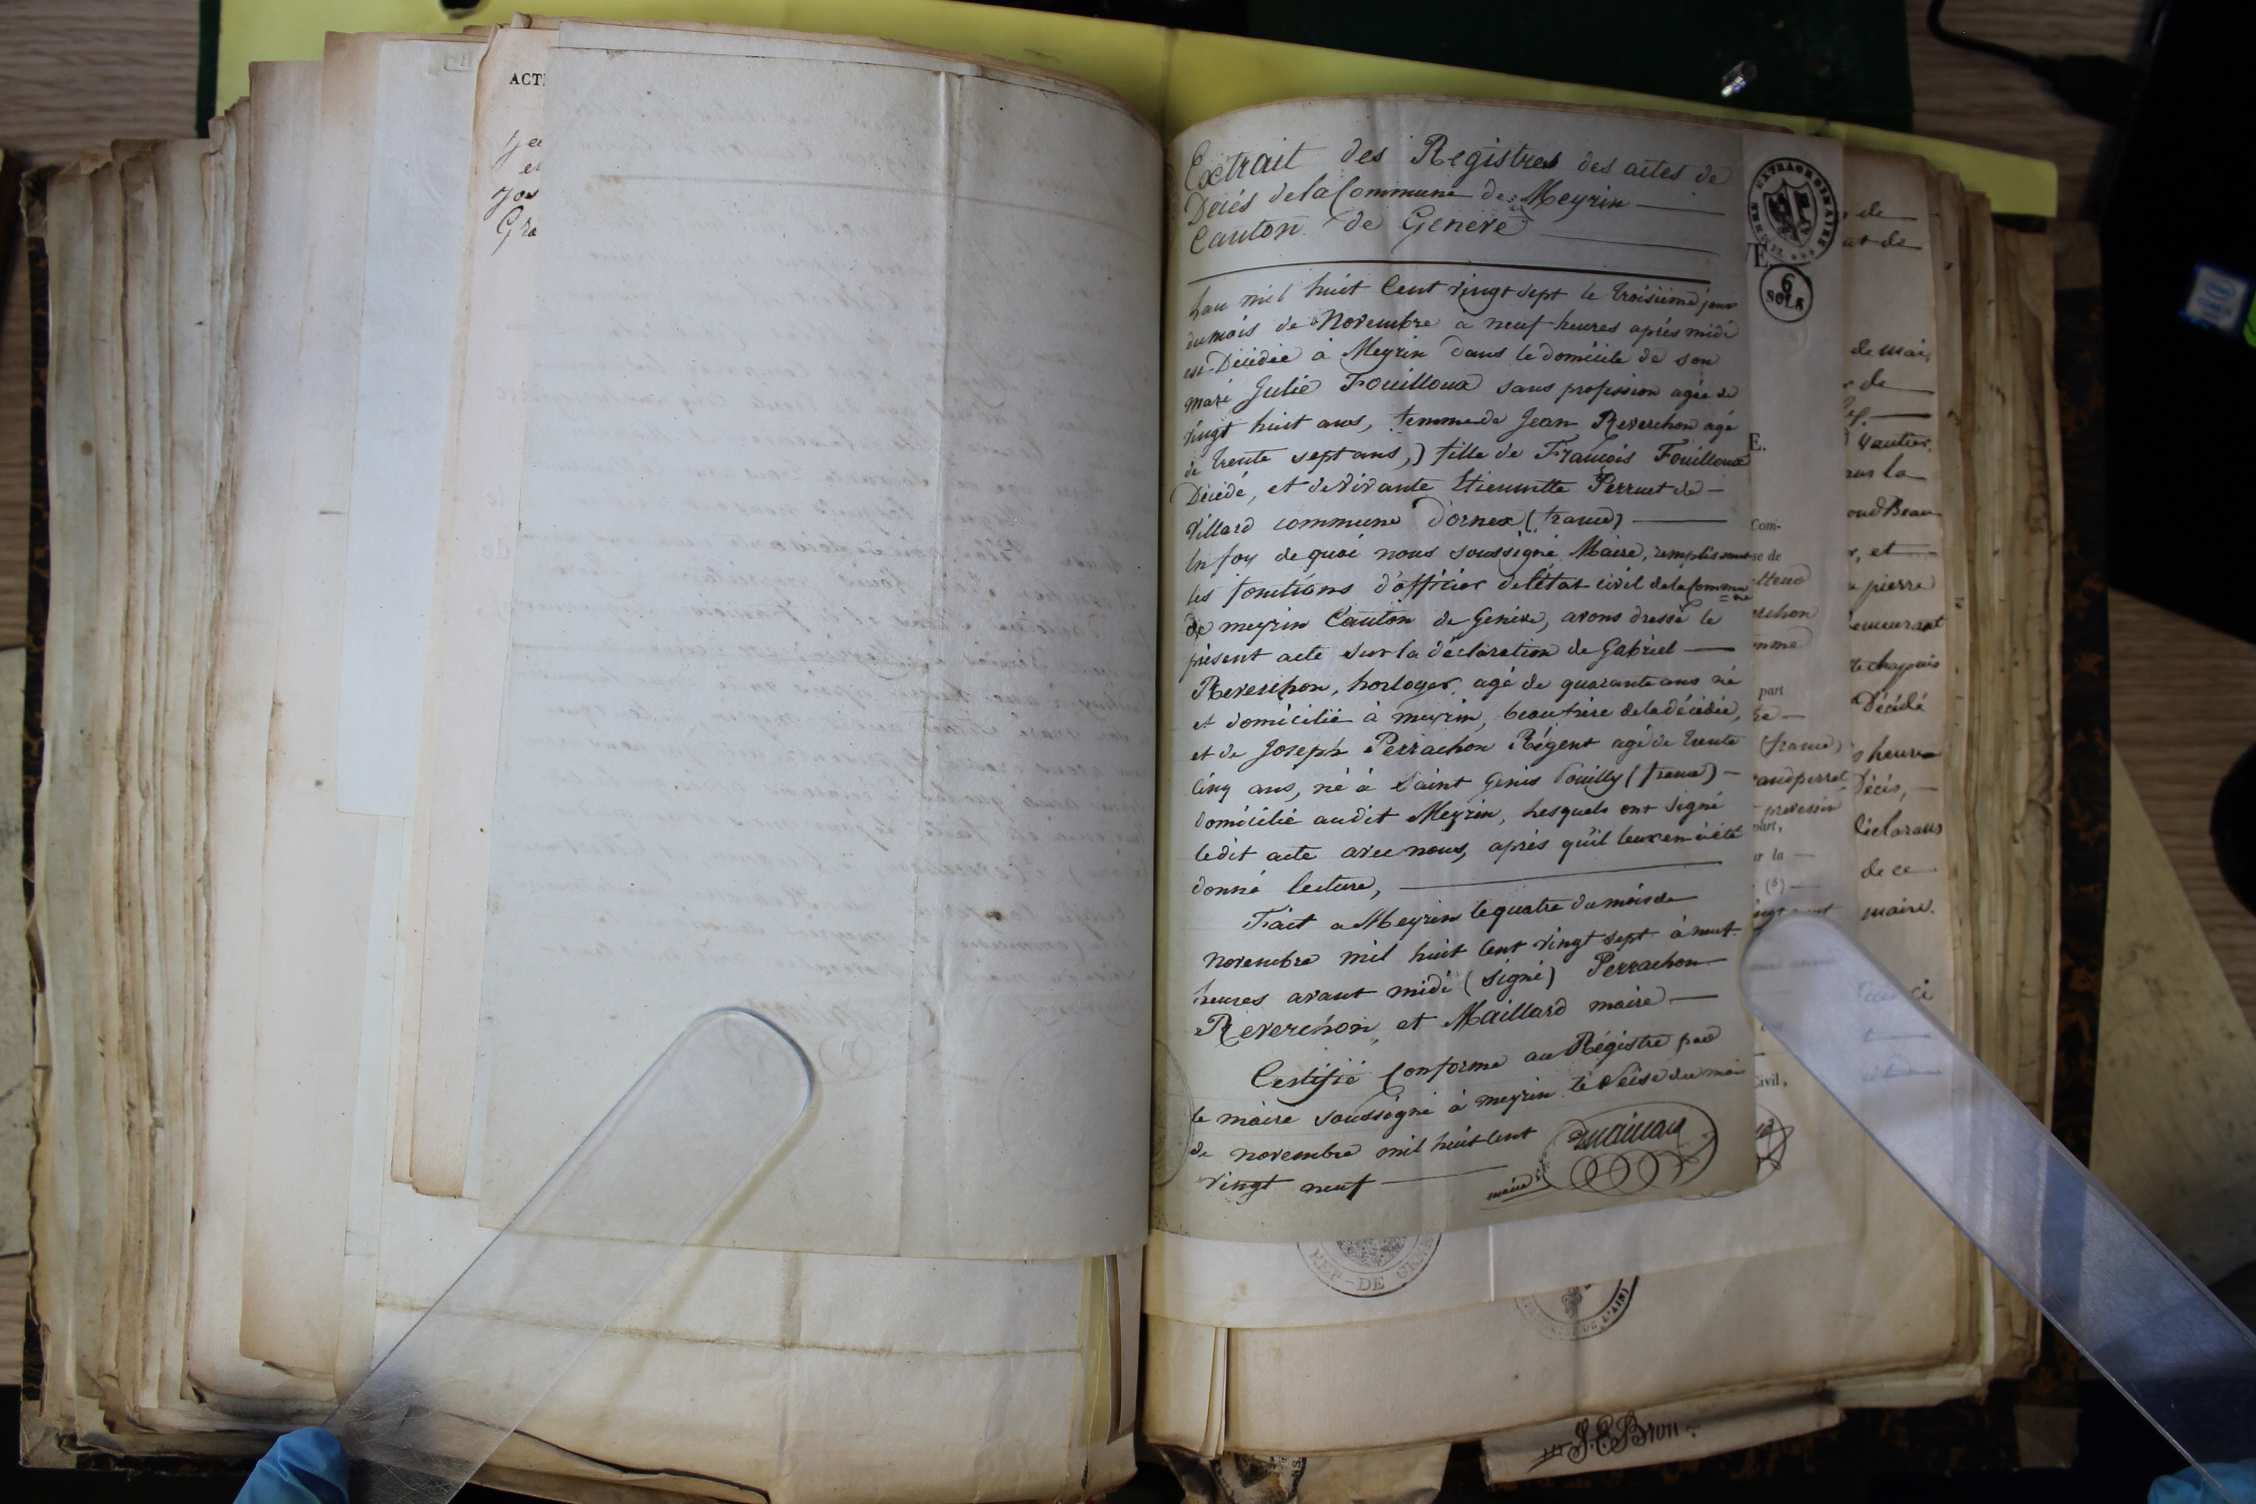 ACT
Extrait des Registres des actes de
Décés de la Commune de Meyrin
Canton de Genève
TIMBRE EXTRAORDINAIRE
6
SOLS
Lan mil huit Cent vingt sept le troisiéme jour
du mois de Novembre à neuf heures aprés midi
est Décédée à Meyrin dans le domicile de son
mari Julie Fouilloux sans profession agée de
vingt huit ans, femme de Jean Reverchon agé
de trente sept ans,) fille de François Fouilloux
Décédé, et de vivante Etiennette Perruet de
Villard commune d'ornex (france)
En foy de quoi nous soussigné Maire, remplissant
les fonctions d'officier de l'état civil de la Commune
de meyrin Canton de Genève, avons dressé le
présent acte sur la déclaration de Gabriel
Reverchon, horloger, agé de quarante ans né
et domicilié à meyrin, beaufrère de la décédée,
et de Joseph Perrachon Régent agé de trente
Cinq ans, né à Saint Genis Pouilly (france)
domicilié audit Meyrin, Lesquels ont signé
ledit acte avec nous, aprés qu'il leur en a été
donné lecture,
Fait a Meyrin le quatre du mois de
Novembre mil huit Cent vingt sept à neuf
heures avant midi (signé) Perrachon
Reverchon, et Maillard maire
Certifié Conforme au Régistre par
le maire soussigné à meyrin le Seise du mois
de novembre mil huit Cent
vingt neuf
maire
Maillard
E.
Com-
se de
erchon
part
(france)
part,
ur la
(5)
Civil,
de
de mai,
de
Vautier,
sur la
et
pierre
demeurant
Décédé
heures
Décés,
déclarans
de ce
maire.
REP - DE GEN
DE L'AIN)
J. E. Bron